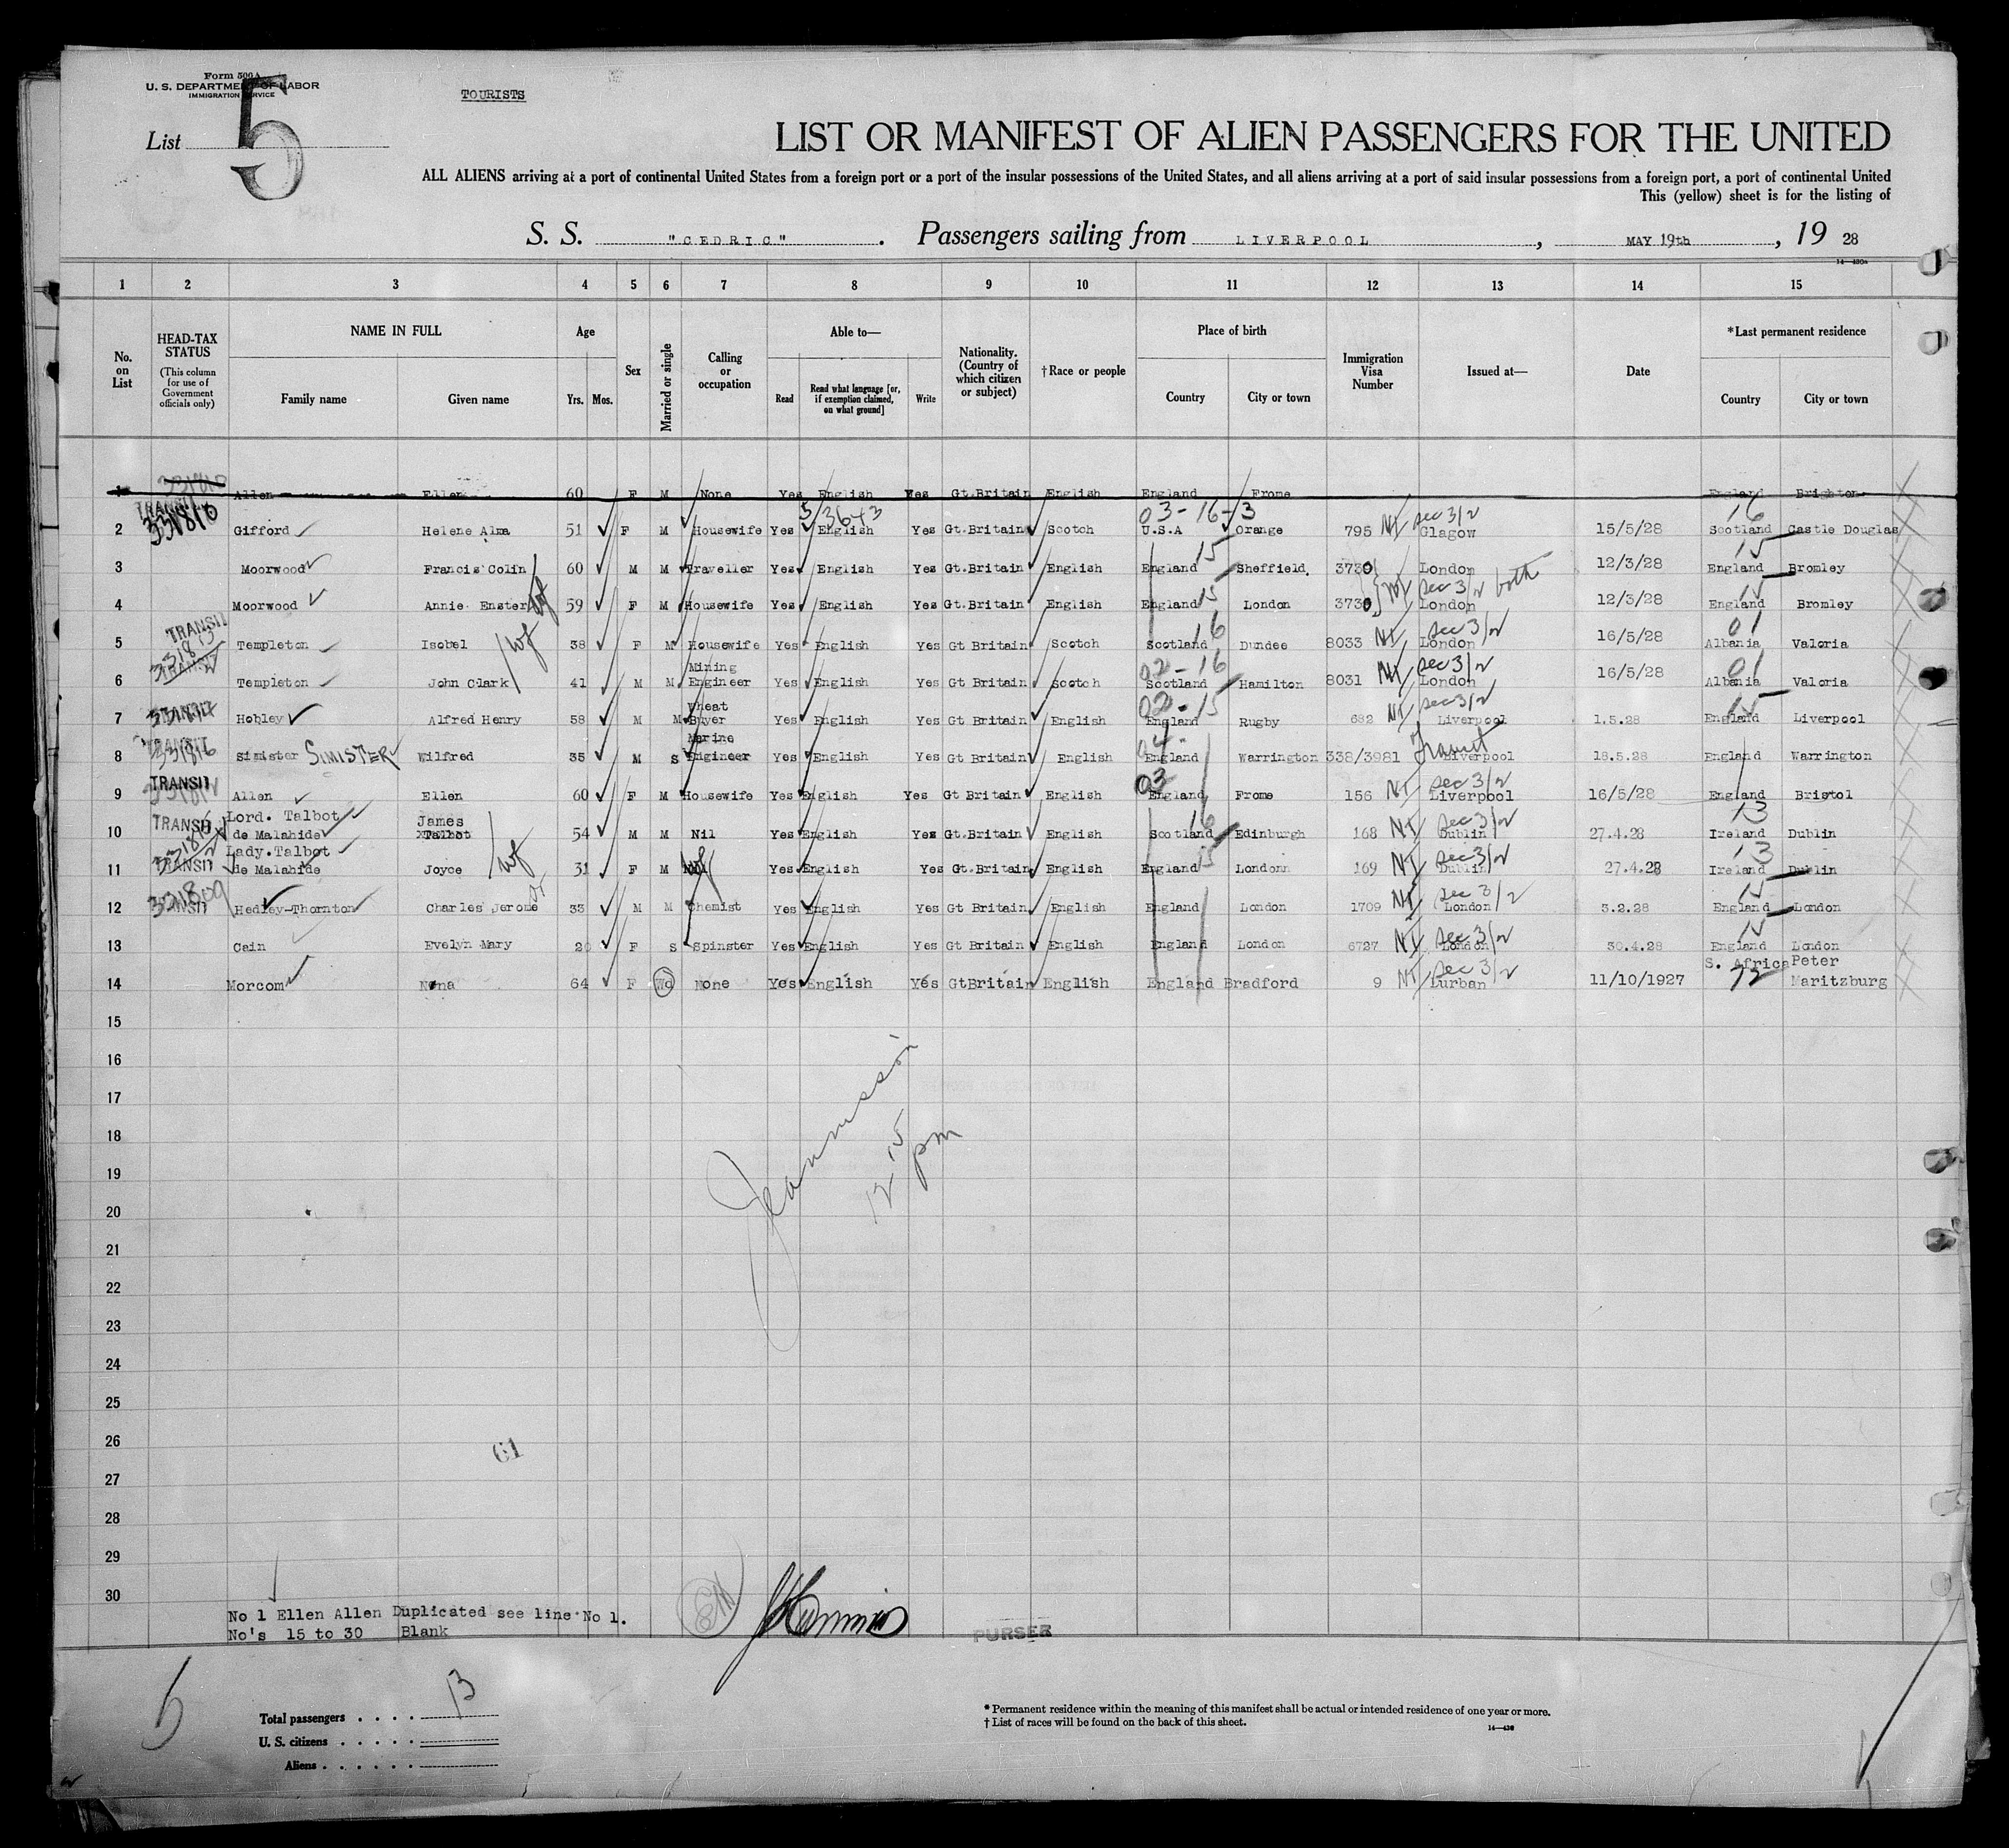 Form 500A
U. S. DEPARTMENT OF LABOR
IMMIGRATION SERVICE
TOURISTS
List 5
LIST OR MANIFEST OF ALIEN PASSENGERS FOR THE UNITED
ALL ALIENS arriving at a port of continental United States from a foreign port or a port of the insular possessions of the United States, and all aliens arriving at a port of said insular possessions from a foreign port, a port of continental United
This (yellow) sheet is for the listing of
S. S. "CEDRIC" . Passengers sailing from LIVERPOOL , MAY 19th , 19 28
1 2 3 4 5 6 7 8 9 10 11 12 13 14 15
No. on List
HEAD-TAX STATUS (This column for use of Government officials only)
NAME IN FULL Family name Given name
Age Yrs. Mos.
Sex
Married or single
Calling or occupation
Able to— Read Read what language [or, if exemption claimed, on what ground] Write
Nationality. (Country of which citizen or subject)
† Race or people
Place of birth Country City or town
Immigration Visa Number
Issued at—
Date
*Last permanent residence Country City or town
1 Allen Ellen 60 F M None Yes English Yes Gt.Britain English England Frome England Brighton
5/3643 03-16-3 sec 3/2 16
2 331810 Gifford Helene Alma 51 F M Housewife Yes English Yes Gt.Britain Scotch U.S.A Orange 795 NI Glasgow 15/5/28 Scotland Castle Douglas
15 15
3 Moorwood Francis Colin 60 M M Traveller Yes English Yes Gt.Britain English England Sheffield. 3730 London 12/3/28 England Bromley
NI sec 3/2 both
4 Moorwood Annie Enster wf 59 F M Housewife Yes English Yes Gt.Britain English England 15 London 3730 London 12/3/28 England 15 Bromley
TRANSIT 16 sec 3/2 01
5 Templeton Isobel wf 38 F M Housewife Yes English Yes Gt Britain Scotch Scotland Dundee 8033 NI London 16/5/28 Albania Valoria
TRANSIT Mining 02-16 sec 3/2 01
6 Templeton John Clark 41 M M Engineer Yes English Yes Gt Britain Scotch Scotland Hamilton 8031 NI London 16/5/28 Albania Valoria
TRANSIT Wheat 02-15 sec 3/2 15
7 Hobley Alfred Henry 58 M M Buyer Yes English Yes Gt Britain English England Rugby 682 NI Liverpool 1.5.28 England Liverpool
TRANSIT Marine 04- Transit
8 331816 Simister SIMISTER Wilfred 35 M S Engineer Yes English Yes Gt Britain English England Warrington 338/3981 Liverpool 18.5.28 England Warrington
TRANSIT 03 sec 3/2
9 Allen Ellen 60 F M Housewife Yes English Yes Gt Britain English England Frome 156 NI Liverpool 16/5/28 England Bristol
TRANSIT Lord. Talbot James 16 sec 3/2 13
10 de Malahide Talbot 54 M M Nil Yes English Yes Gt.Britain English Scotland Edinburgh 168 NI Dublin 27.4.28 Ireland Dublin
TRANSIT Lady.Talbot 15 sec 3/2 13
11 de Malahide Joyce wf 31 F M Nil Yes English Yes Gt.Britain English England Londonn 169 NI Dublin 27.4.28 Ireland Dublin
331809 sec 3/2 15
12 Hedley-Thornton Charles Jerome 33 M M Chemist Yes English Yes Gt Britain English England London 1709 NI London 3.2.28 England London
sec 3/2 15
13 Cain Evelyn Mary 20 F S Spinster Yes English Yes Gt Britain English England London 6727 NI London 30.4.28 England London
sec 3/2 S. Africa Peter
14 Morcom Nona 64 F Wd None Yes English Yes GtBritain English England Bradford 9 NI Durban 11/10/1927 72 Maritzburg
15
16
17
18
19
20
21
22
23
24
25
26
27
28
29
30
12 15 pm
61
No 1 Ellen Allen Duplicated see line No 1.
No's 15 to 30 Blank
PURSER
Total passengers . . . . 13
U. S. citizens . . . . .
Aliens . . . . . .
* Permanent residence within the meaning of this manifest shall be actual or intended residence of one year or more.
† List of races will be found on the back of this sheet.
14—430